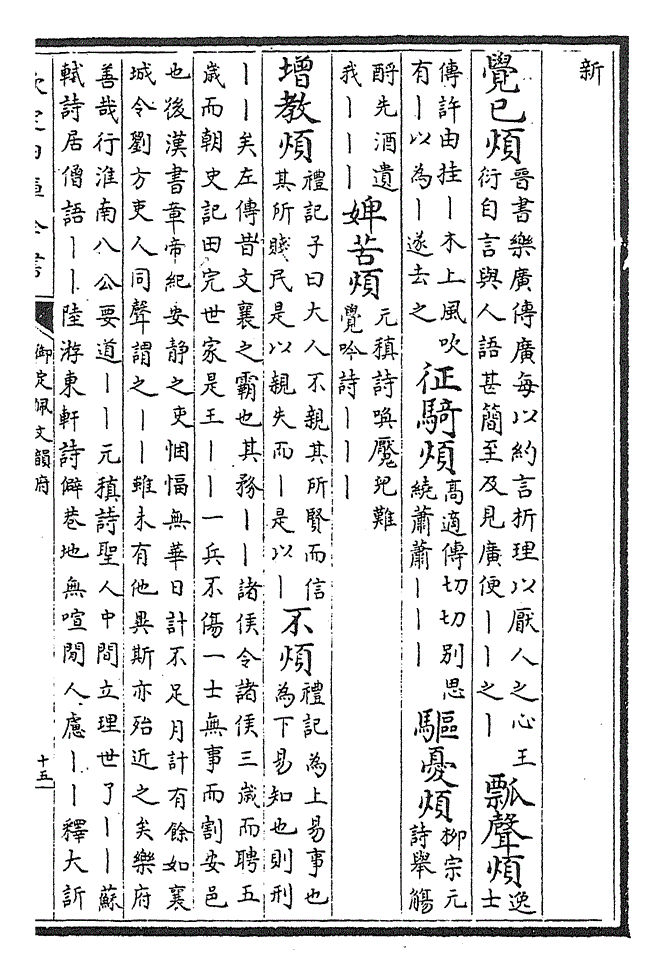 新
覺已煩
晉書樂廣傳廣每以約言折理以厭人之心王
衍自言與人語甚簡至及見廣便丨丨之丨
瓢聲煩
逸
士
傳許由挂丨木上風吹
有丨以為丨遂去之
征騎煩
高適傳切切別思
繞蕭蕭丨丨丨
驅憂煩
柳宗元
詩舉觴
酹先酒遺
我丨丨丨
婢苦煩
元稹詩喚魘兒難
覺吟詩丨丨丨
增教煩
禮記子曰大人不親其所賢而信
其所賤民是以親失而丨是以丨
不煩
禮記為上易事也
為下易知也則刑
丨丨矣左傳昔文襄之霸也其務丨丨諸侯令諸侯三歲而聘五
歲而朝史記田完世家是王丨丨一兵不傷一士無事而割安邑
也後漢書章帝紀安静之吏悃愊無華日計不足月計有餘如襄
城令劉方吏人同聲謂之丨丨雖未有他異斯亦殆近之矣樂府
善哉行淮南八公要道丨丨元稹詩聖人中間立理世了丨丨蘇
軾詩居僧語丨丨陸游東軒詩僻巷地無喧閒人慮丨丨釋大訢
欽定四庫全書
御定佩文韻府
十五